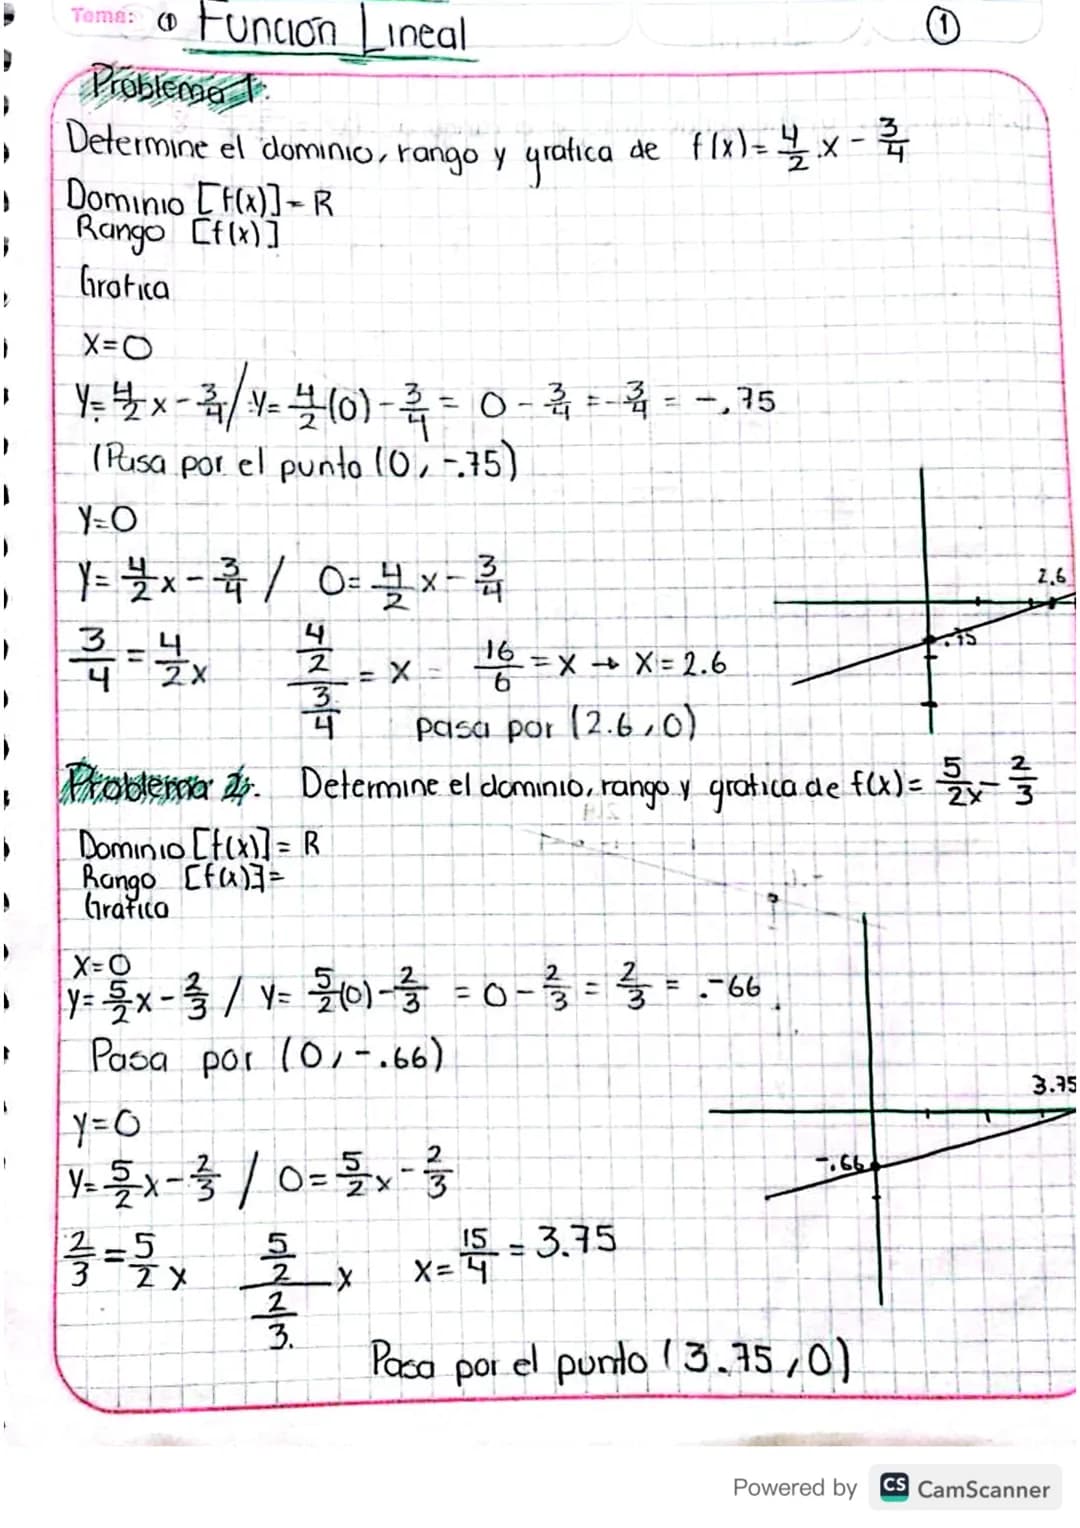 Tema: ① Función Lineal ①
Problema 1.
Determine el dominio, rango y grafica de f(x)= 4/2 x - 3/4
Dominio [f(x)] = R
Rango [f(x)]
Grafica
x=0
y= 4/2 x - 3/4 / y= 4/2 (0) - 3/4 = 0 - 3/4 = -3/4 = -.75
(Pasa por el punto (0, -.75)
y=0
y= 4/2 x - 3/4 / 0= 4/2 x - 3/4
2.6
-.75
3/4 = 4/2 x   4/2 / 3/4 = x - 16/6 = x → x= 2.6
pasa por (2.6, 0)
Problema 2. Determine el dominio, rango y grafica de f(x)= 5/2x - 2/3
Dominio [f(x)] = R
Rango [f(x)] =
Grafica
x=0
y= 5/2 x - 2/3 / y= 5/2 (0) - 2/3 = 0 - 2/3 = 2/3 = .-66
Pasa por (0, -.66)
3.75
y=0
-.66
y= 5/2 x - 2/3 / 0= 5/2 x - 2/3
2/3 = 5/2 x   5/2 / 2/3. x   x= 15/4 = 3.75
Pasa por el punto (3.75, 0)
Powered by CS CamScanner